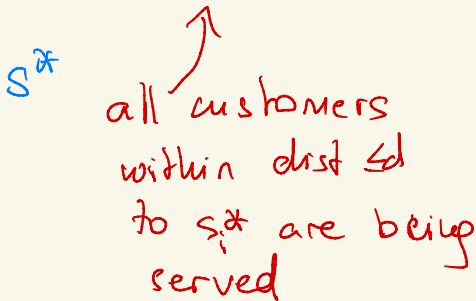 S*
all customers
within dist ≤d
to s_i* are being
served